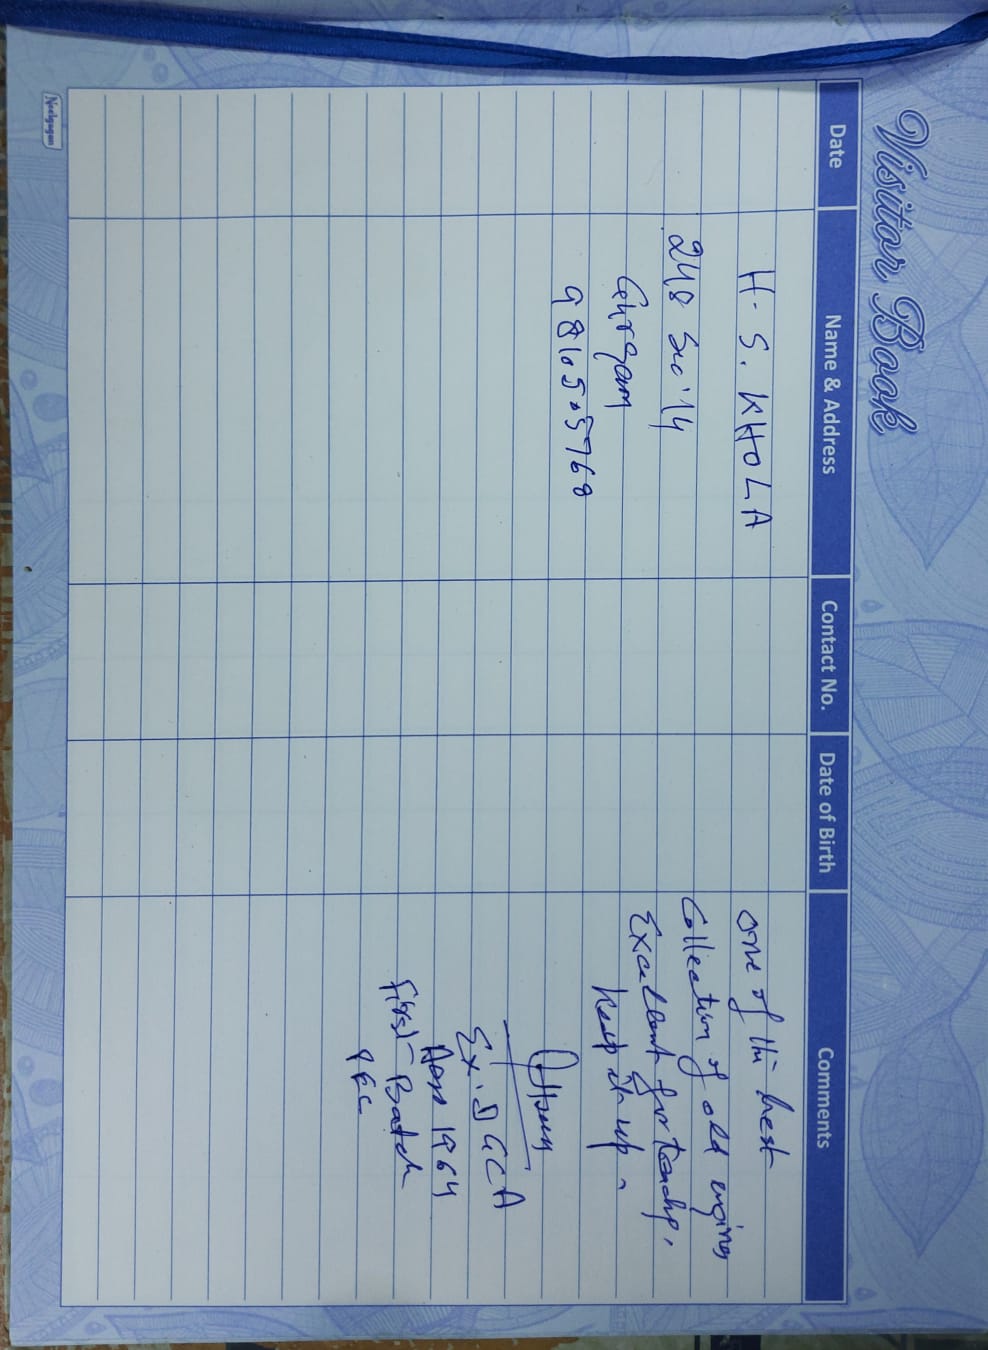 Visitor Book
Date Name & Address Contact No. Date of Birth Comments
H. S. KHOLA
248 Sec 14
Gurgaon
9810505768
one of the best
Collection of old engines
Excellent for teaching.
Keep it up.
Ex. DGCA
Aero 1964
First Batch
PEC
Neelgagan